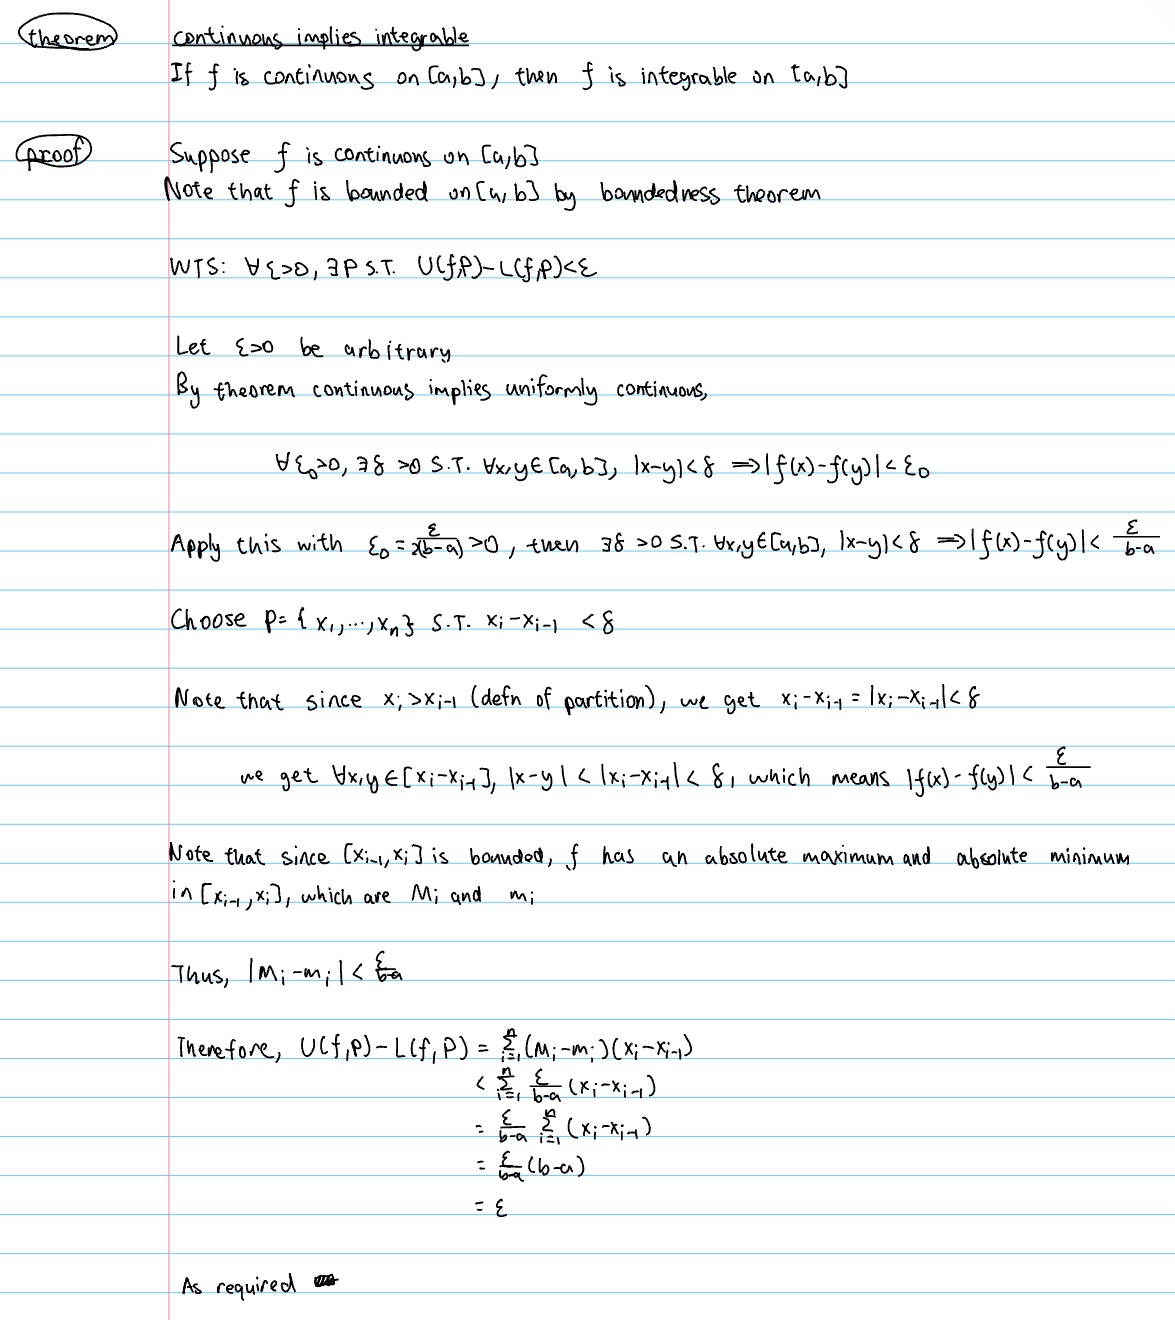 theorem continuous implies integrable
If f is continuous on [a,b], then f is integrable on [a,b]
proof Suppose f is continuous on [a,b]
Note that f is bounded on [a,b] by boundedness theorem
WTS: ∀ε>0, ∃P S.T. U(f,P)-L(f,P)<ε
Let ε>0 be arbitrary
By theorem continuous implies uniformly continuous,
∀ε₀>0, ∃δ>0 S.T. ∀x,y∈[a,b], |x-y|<δ ⟹|f(x)-f(y)|<ε₀
Apply this with ε₀=ε/2(b-a)>0, then ∃δ>0 S.T. ∀x,y∈[a,b], |x-y|<δ ⟹|f(x)-f(y)|<ε/b-a
Choose P={x₁,...,xₙ} S.T. xᵢ-xᵢ₋₁<δ
Note that since xᵢ>xᵢ₋₁ (defn of partition), we get xᵢ-xᵢ₋₁=|xᵢ-xᵢ₋₁|<δ
we get ∀x,y∈[xᵢ-xᵢ₋₁], |x-y|<|xᵢ-xᵢ₋₁|<δ, which means |f(x)-f(y)|<ε/b-a
Note that since [xᵢ₋₁,xᵢ] is bounded, f has an absolute maximum and absolute minimum
in [xᵢ₋₁,xᵢ], which are Mᵢ and mᵢ
Thus, |Mᵢ-mᵢ|<ε/b-a
Therefore, U(f,P)-L(f,P)=∑ᵢ₌₁ⁿ(Mᵢ-mᵢ)(xᵢ-xᵢ₋₁)
<∑ᵢ₌₁ⁿ ε/b-a (xᵢ-xᵢ₋₁)
=ε/b-a ∑ᵢ₌₁ⁿ(xᵢ-xᵢ₋₁)
=ε/b-a (b-a)
=ε
As required